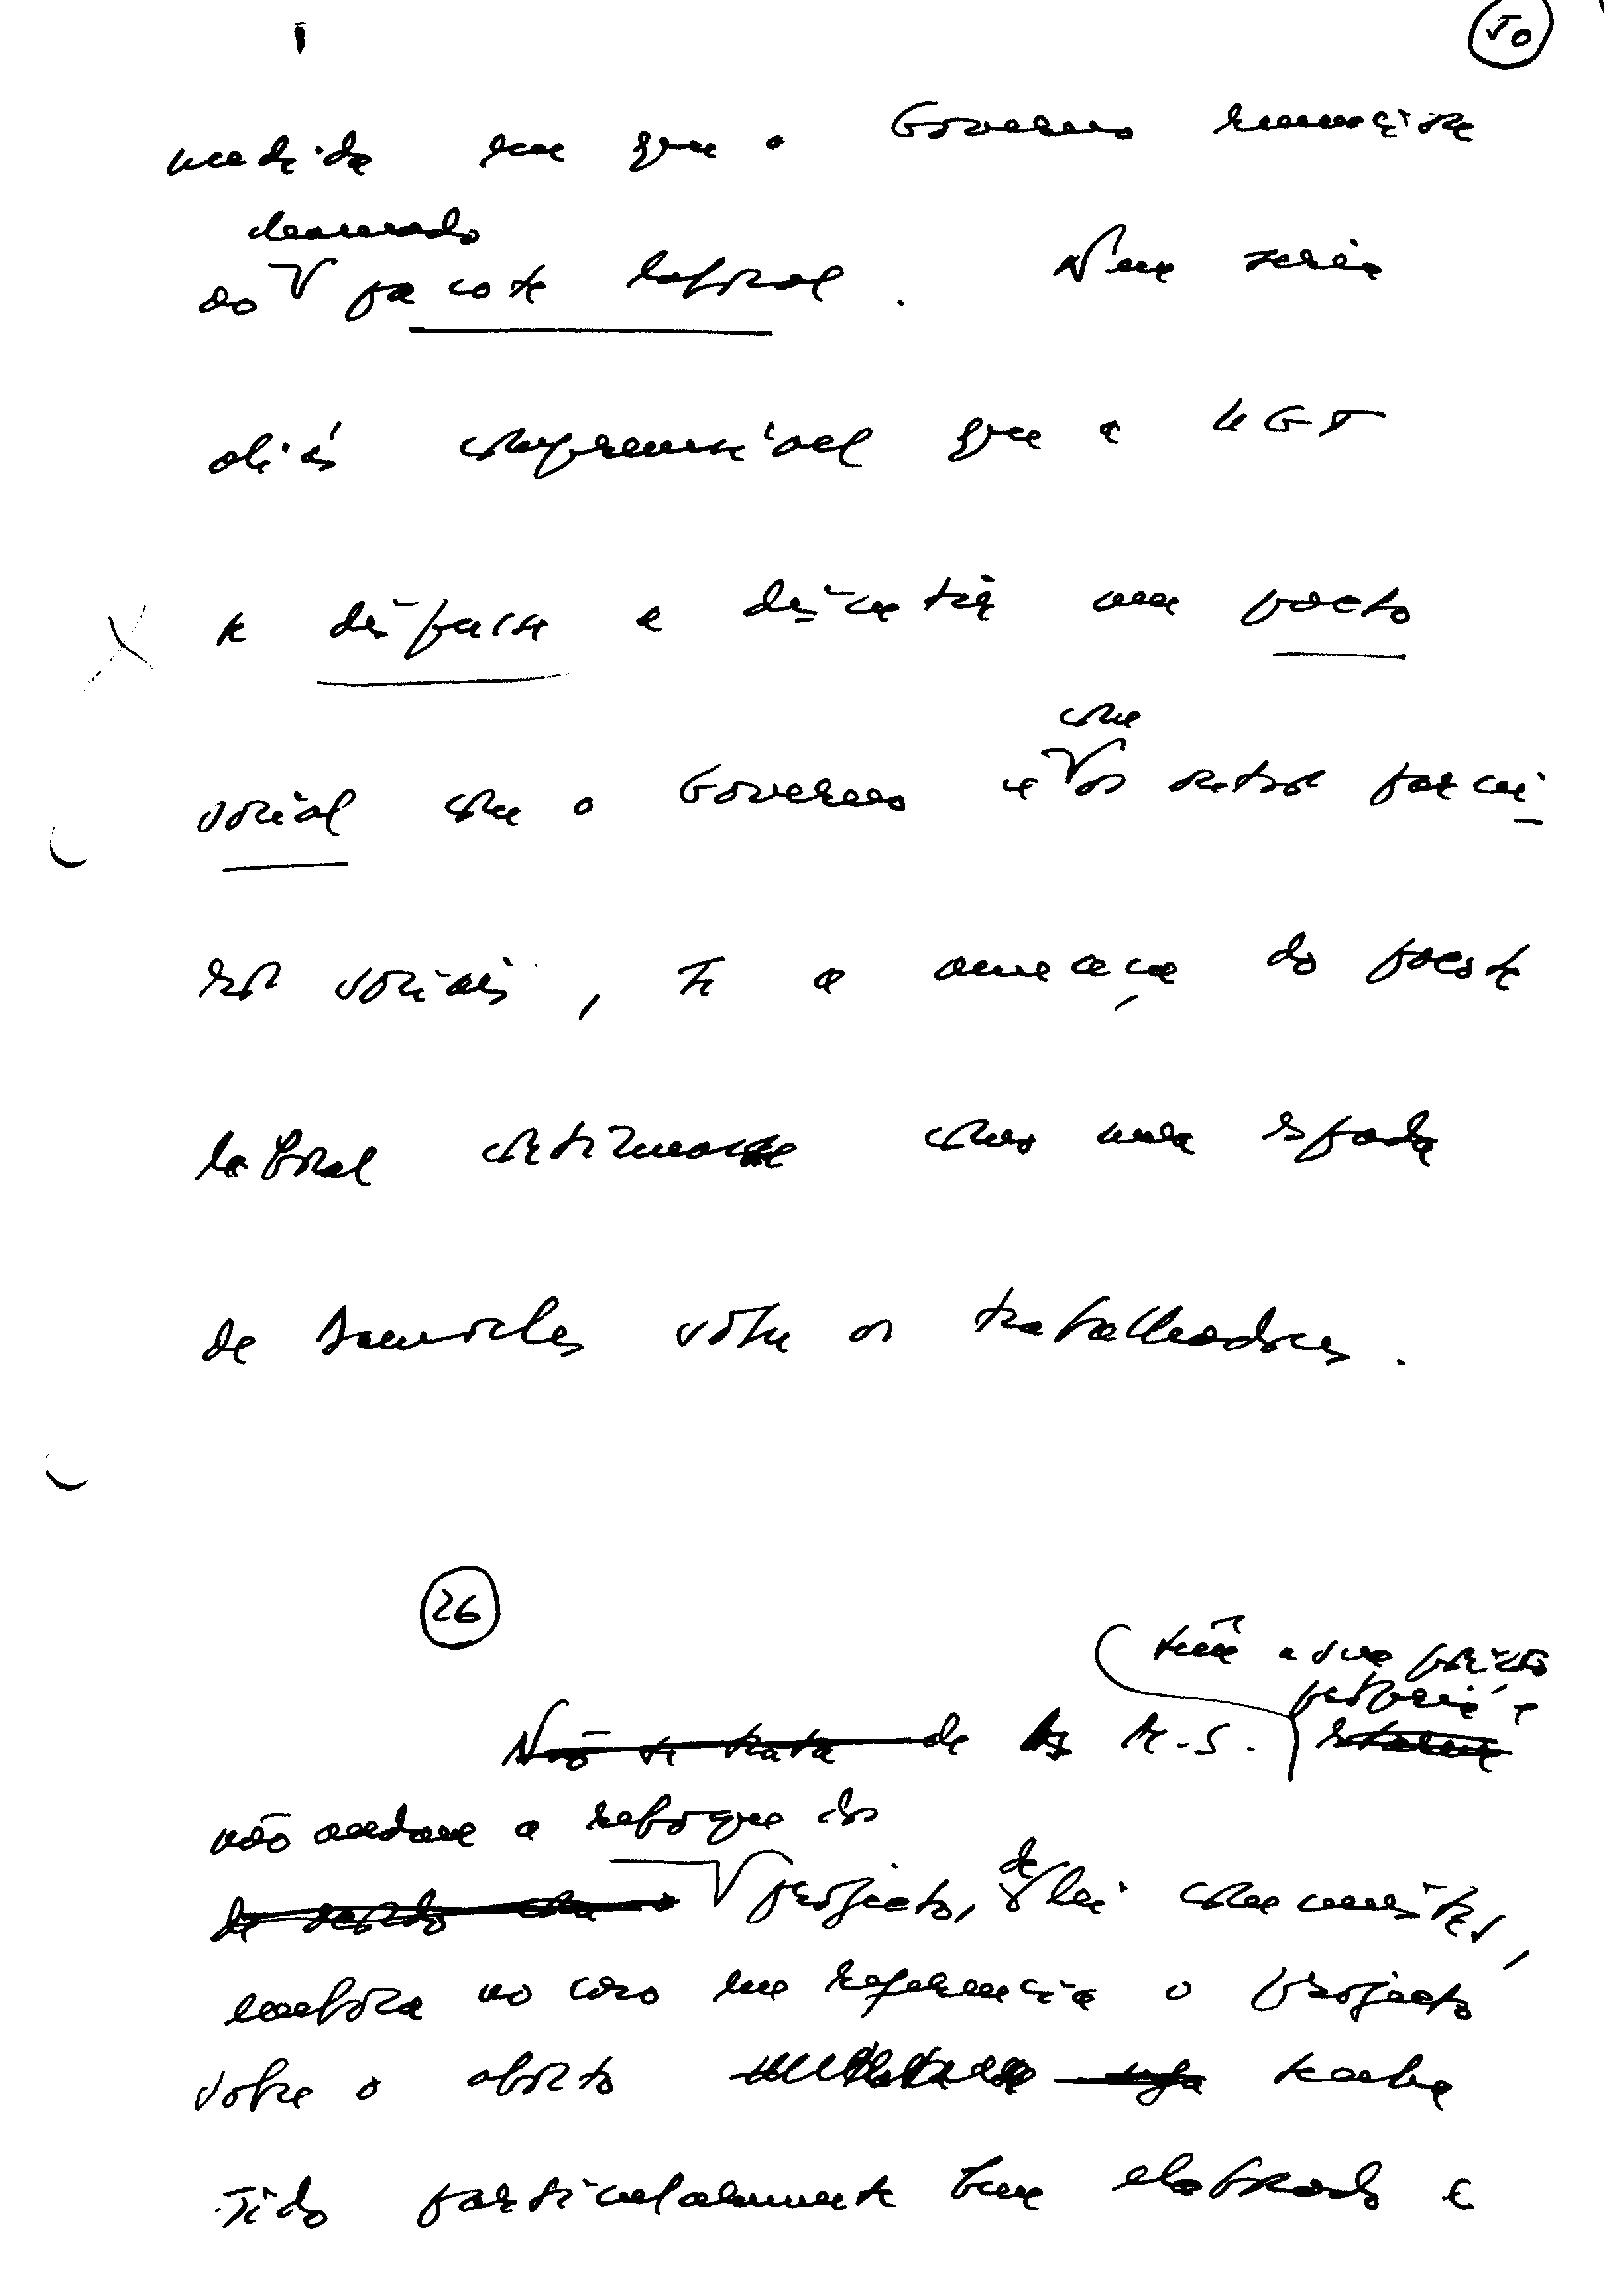 50
medida em que o Governo renuncie
chamado
ao pacote laboral. Nem seria
aliás compreensível que a UGT
se dispusesse a discutir um pacto
com
social com o Governo e os outros parcei
ros sociais, se a ameaça do pacote
laboral continuasse como uma espada
de Damocles sobre os trabalhadores.
26
tem a sua posição
própria e
Não se trata de M.S.
não andam a reboque dos
projectos, de lei comunistas,
embora no caso em referência o projecto
sobre o aborto tenha
sido particularmente bem elaborado e